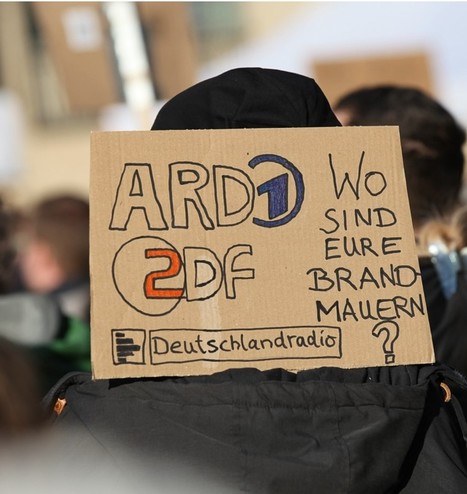 ARD 1
ZDF
Deutschlandradio
WO
SIND
EURE
BRAND-
MAUERN
?